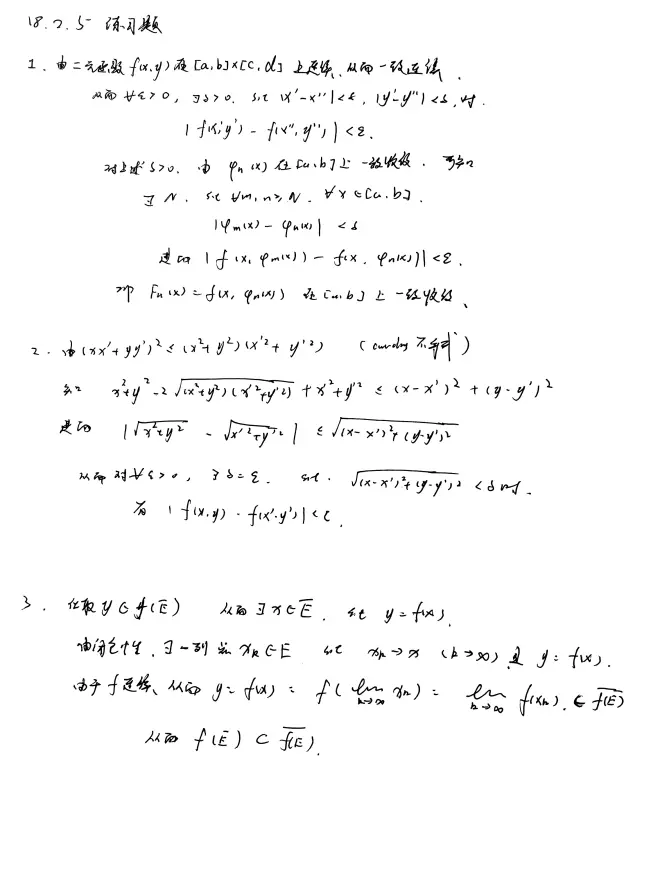 18.2.5 练习题
1. 由二元函数 f(x,y) 在 [a,b]×[c,d] 上连续, 从而一致连续.
从而 ∀ε>0, ∃δ>0. s.t |x'-x''|<δ, |y'-y''|<δ, 时.
|f(x',y') - f(x'',y'')|<ε.
对上述 δ>0. 由 φn(x) 在 [a,b] 上 一致收敛. 可知
∃ N. s.t ∀m,n≥N. ∀x∈[a,b].
|φm(x) - φn(x)| <δ
进而 |f(x, φm(x)) - f(x, φn(x))|<ε.
即 Fn(x)=f(x, φn(x)) 在 [a,b] 上 一致收敛.
2. 由 (xx'+yy')² ≤ (x²+y²)(x'²+y'²) (cauchy 不等式)
知 x²+y²-2√(x²+y²)(x'²+y'²) + x'²+y'² ≤ (x-x')²+(y-y')²
进而 |√x²+y² - √x'²+y'²| ≤ √(x-x')²+(y-y')²
从而对 ∀ε>0, ∃δ=ε. s.t. √(x-x')²+(y-y')² <δ 时.
有 |f(x,y) - f(x',y')|<ε.
3. 任取 y∈f(Ē) 从而 ∃x∈Ē. s.t y=f(x).
由闭包性, ∃一列 xk∈E s.t xk→x (k→∞) 且 y=f(x).
由于 f 连续, 从而 y=f(x) = f(lim k→∞ xk) = lim k→∞ f(xk). ∈ f(E)‾
从而 f(Ē) ⊂ f(E)‾.